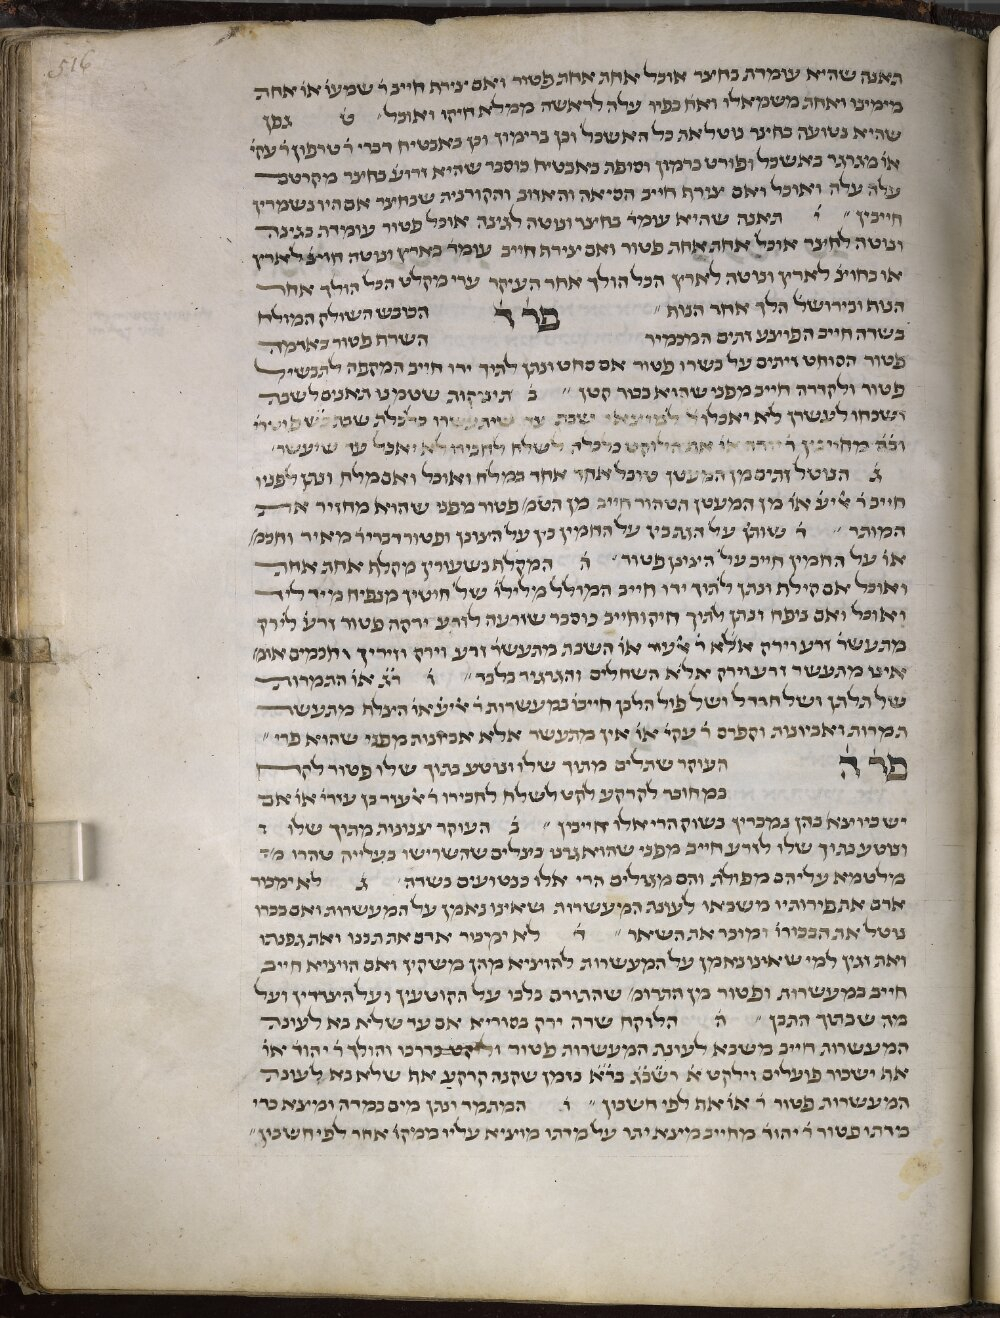 516
תאנה שהיא עומדת בחיצר אוכל אחת אחת פטור ואם צירף חייב ר׳ שמעו׳ או׳ אחת
מימינו ואחת משמאלו ואח׳ בפיו עלה לראשה ממלא חיקו ואוכל׳ ט גפן
שהיא נטועה בחיצר נוטל את כל האשכל וכן ברימון וכן באבטיח דברי ר׳ טרפון ר׳ עקי׳
או׳ מגרגר באשכל ופורט ברמון וסופת באבטיח כוסבר שהיא זרוע׳ בחיצר מקרטם
עלה עלה ואוכל ואם צירף חייב הסיאה והאזוב והקורנית שבחיצר אם היו נשמרין
חייבין ״ י תאנה שהיא עומד׳ בחיצר ונוטה לגינה אוכל פטור עומדת בגינה
ונוטה לחיצר אוכל אחת אחת פטור ואם צירף חייב עומד׳ בארץ ונוטה חוצ׳ לארץ
או בחוצ׳ לארץ ונוטה לארץ הכל הולך אחר העיקר ערי מקלט הכל הולך אחר
הנוף ובירושל׳ הלך אחר הנוף ״ פר׳ ד׳ הכובש השולק המולח
בשדה חייב הפוצע זתים המכמיר השרח פטור באדמה
פטור הסוחט זיתים על בשרו פטור אם סחט ונתן לתוך ידו חייב המקפה לתבשיל
פטור ולקדרה חייב מפני שהוא כבור קטן ״ ב׳ תינוקות שטמנו תאנים לשבת
ושכחו לעשרן לא יאכלו למוצאי שבת עד שיתעשרו כלכלת שבת ב״ש פוטרי׳
וב״ה מחייבין ר׳ יודה או׳ אף הלוקט כלכלה לשלח לחבירו לא יאכל עד שיעשר׳
ג׳ הנוטל זתים מן המעטן טובל אחד אחד במלח ואוכל ואם מלח ונתן לפניו
חייב ר׳ ליע׳ או׳ מן המעטן הטהור חייב מן הטמ׳ פטור מפני שהוא מחזיר את
המותר ״ ד׳ שותין על הגת בין על החמין בין על הצונן ופטור דברי ר׳ מאיר וחכמ׳
או׳ על החמין חייב על הצינן פטור ״ ה׳ המקלף בשעורין מקלף אחת אחת
ואוכל אם קילף ונתן לתוך ידו חייב המולל מלילו׳ של חיטין מנפיח מיד ליד
ואוכל ואם ניפח ונתן לתוך חיקו חייב כוסבר שזרעה לזרע ירקה פטור זרע׳ לירק
מתעשר׳ זרע וירק אלא ר׳ ליעזר או׳ השבת מתעשר׳ זרע וירק וזירין וחכמים אומ׳
אינו מתעשר זרע וירק אלא השחלים והגרגיר בלבד ״ ו׳ רג׳ או׳ התמרות
של תלתן ושל חרדל ושל פול הלבן חייבו׳ במעשרות ר׳ ליע׳ או׳ הצלף מתעשר
תמרות ואביונות וקפרס ר׳ עקי׳ או׳ אין מתעשר אלא אביונות מפני שהוא פרי ״
פר׳ ה׳ העוקר שתלים מתוך שלו ונוטע בתוך שלו פטור לקח
במחובר לקרקע לקט לשלח לחבירו ר׳ לעזר בן עזרי׳ או׳ אם
יש כיוצא בהן נמכרין בשוק הרי אלו חייבין ״ ב׳ העוקר צנונות מתוך שלו
ונוטע בתוך שלו לזרע חייב מפני שהוא גרנו בצלים שהשרישו בעלייה טהרו
מילטמא עליהם מפולת והם מגולים הרי אלו כנטועים בשדה׳ ג׳ לא ימכור
אדם את פירותיו משבאו לעונת המעשרות ושאינו נאמן על המעשרות ואם בכרו
נוטל את הבכורו׳ ומוכר את השאר ״ ד׳ לא ימכור אדם את תבנו ואת גפתו
ואת זגין למי שאינו נאמן על המעשרות להוציא מהן משקין ואם הוציא חייב
חייב במעשרות ופטור מן התרומ׳ שהתורם בלבו על הקוטעין ועל הצדדין ועל
מה שבתוך התבן ״ ה׳ הלוקח שדה ירק בסוריא אם עד שלא בא לעונת
המעשרות חייב משבא לעונת המעשרות פטור ולוקט כדרכו והולך ר׳ יהוד׳ או׳
אף ישכור פועלים וילקט א׳ רשב״ג בד״א בזמן שקנה קרקע אף שלא בא לעונת
המעשרות פטור ר׳ או׳ אף לפי חשבון ״ ו׳ המתמד ונתן מים במדה ומיצא כדי
מדתו פטור ר׳ יהוד׳ מחייב מיצא יתר על מדתו מוציא עליו ממקו׳ אחר לפי חשבון ״